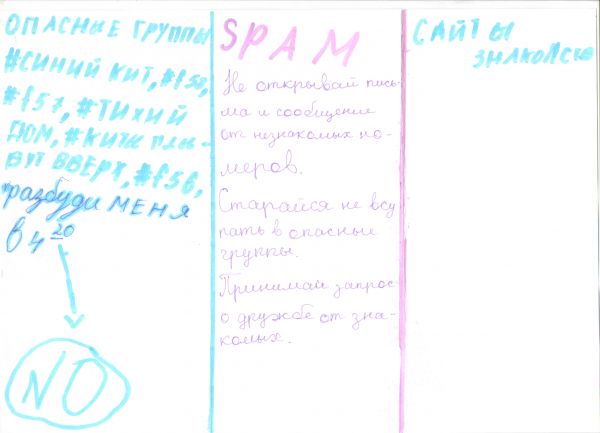 ОПАСНЫЕ ГРУППЫ
#СИНИЙ КИТ, #f58,
#f57, #ТИХИЙ
ДОМ, #КИТЫ ПЛЫ-
ВУТ ВВЕРХ, #f56,
"разбуди МЕНЯ
В 4 20
NO
SPAM
Не открывай пись-
ма и сообщения
от незнакомых но-
меров.
Старайся не всту
пать в опасные
группы.
Принимай запрос
о дружбе от зна-
комых.
САЙТЫ